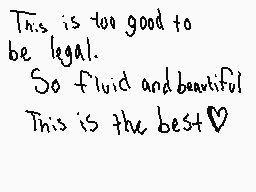 This is too good to
be legal.
So fluid and beautiful
This is the best♡